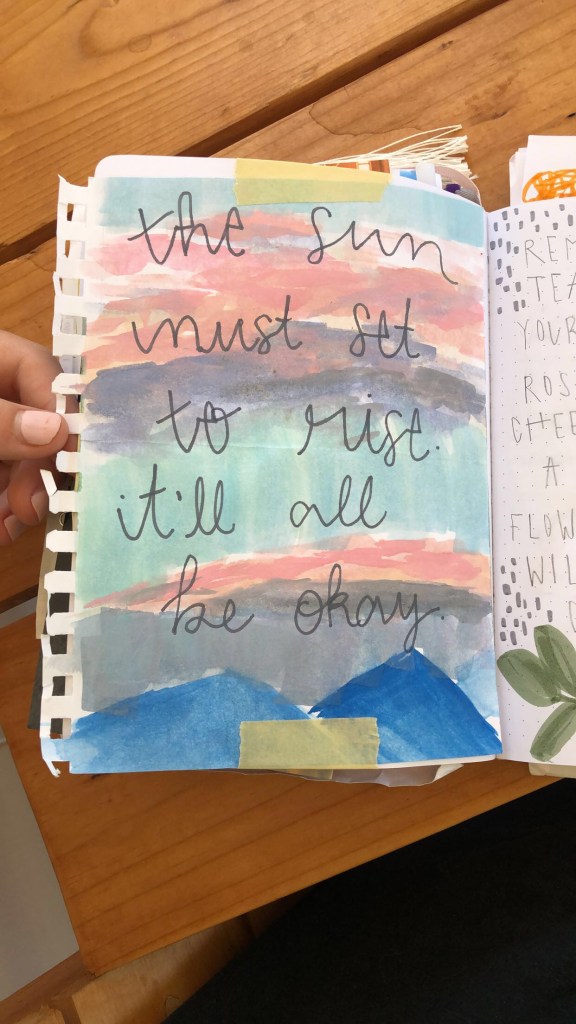 the sun
must set
to rise.
it'll all
be okay.
REM
TEA
YOUR
ROS
CHEE
A
FLOW
WIL